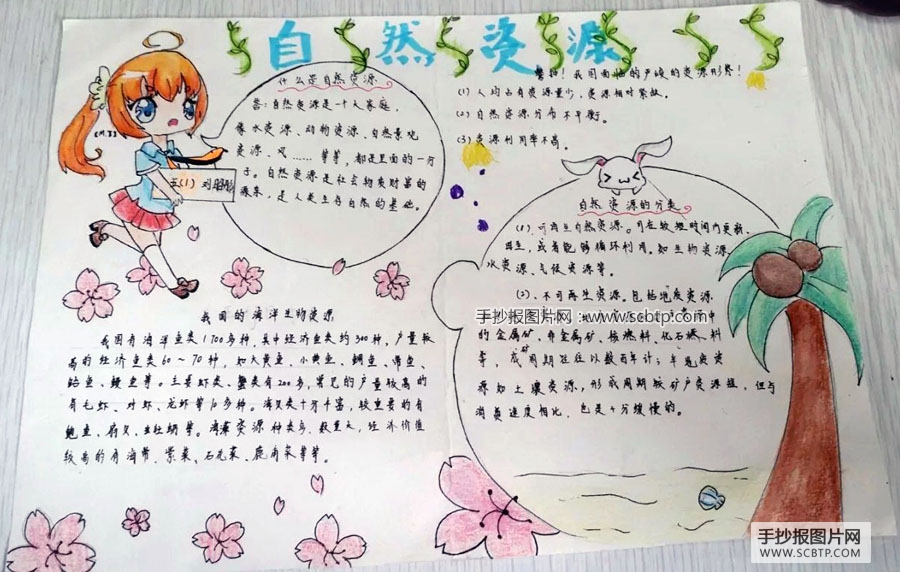 自然资源
什么是自然资源
答:自然资源是一个大家庭,
像水资源、动物资源、自然景观
资源、风……等等,都是里面的一份
子。自然资源是社会物质财富的
源泉,是人类生存自然的基础。
五(1)
警报!我国面临的严峻的资源形势!
(1)人均占有资源量少,资源相对紧缺。
(2)自然资源分布不平衡。
(3)资源利用率不高。
自然资源的分类
(1)、可再生自然资源。可在较短时间内更新、
再生,或者能够循环利用。如生物资源、
水资源、气候资源等。
(2)、不可再生资源。包括地质资源
手抄报图片网:www.scbtp.com 中
的金属矿、非金属矿、核燃料、化石燃料
等,成周期往往以数百年计;半
源如土壤资源,形成周期较矿产资源短,但与
消费速度相比,也是十分缓慢的。
我国的海洋生物资源
我国有海洋鱼类1700多种,其中经济鱼类约300种,产量较
高的经济鱼类60~70种,如大黄鱼、小黄鱼、鲷鱼、带鱼、
鲐鱼、鳗鱼等。主要虾类、蟹类有200多,常见的产量较高的
有毛虾、对虾、龙虾等10多种。海贝类十分丰富,较重要的有
鲍鱼、扇贝、牡蛎等。海藻资源种类多、数量大,经济价值
较高的有海带、紫菜、石花菜、鹿角菜等等。
手抄报图片网
WWW.SCBTP.COM